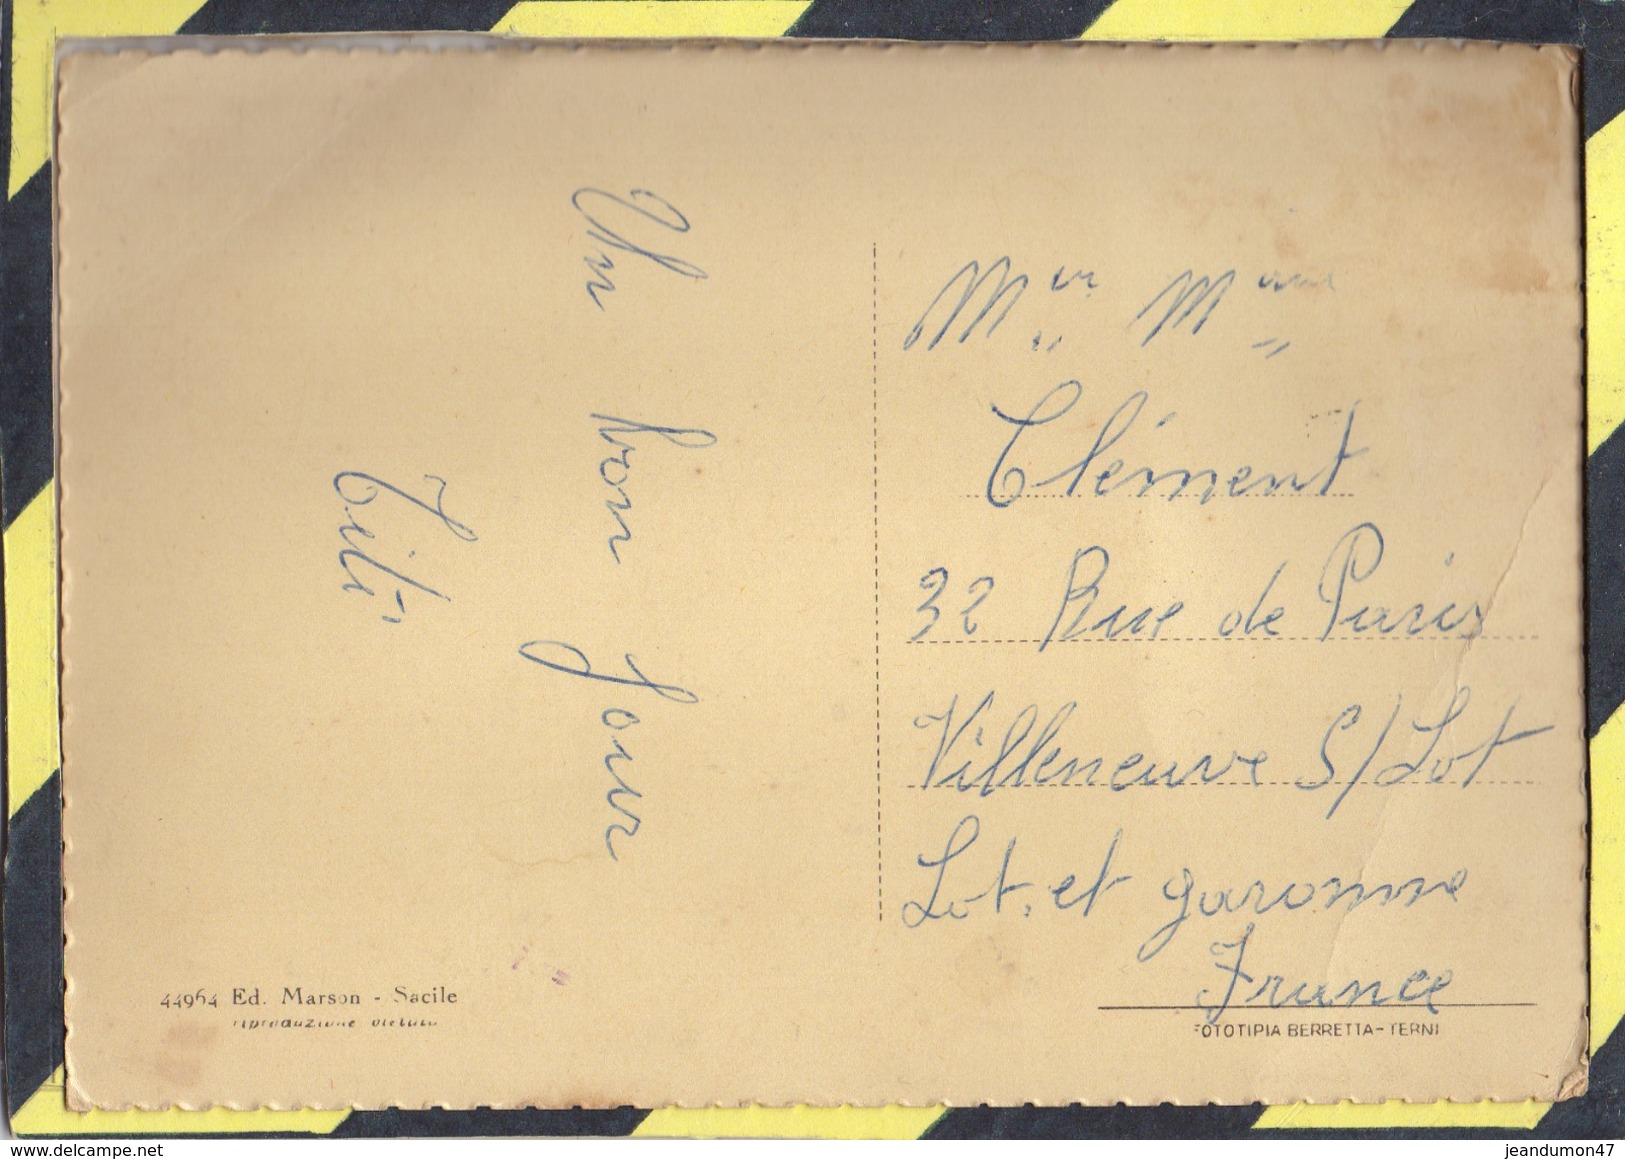 Un bon Jour
Titi
Mer Mme
Clément
32 Rue de Paris
Villeneuve S/Lot
Lot. et garonne
France
44964 Ed. Marson - Sacile
riproduzione vietata
FOTOTIPIA BERRETTA-TERNI
delcampe.net
jeandumon47